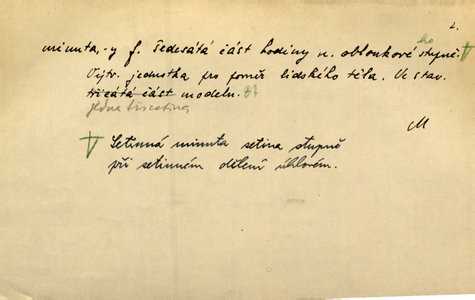 2.
minuta, -y f. šedesátá část hodiny n. obloukového stupně.
Výtv. jednotka pro poměr lidského těla. Ve stav.
třicátá část modelu.
jedna třicetina
M
Setinná minuta setina stupně
při setinném dělení úhlovém.